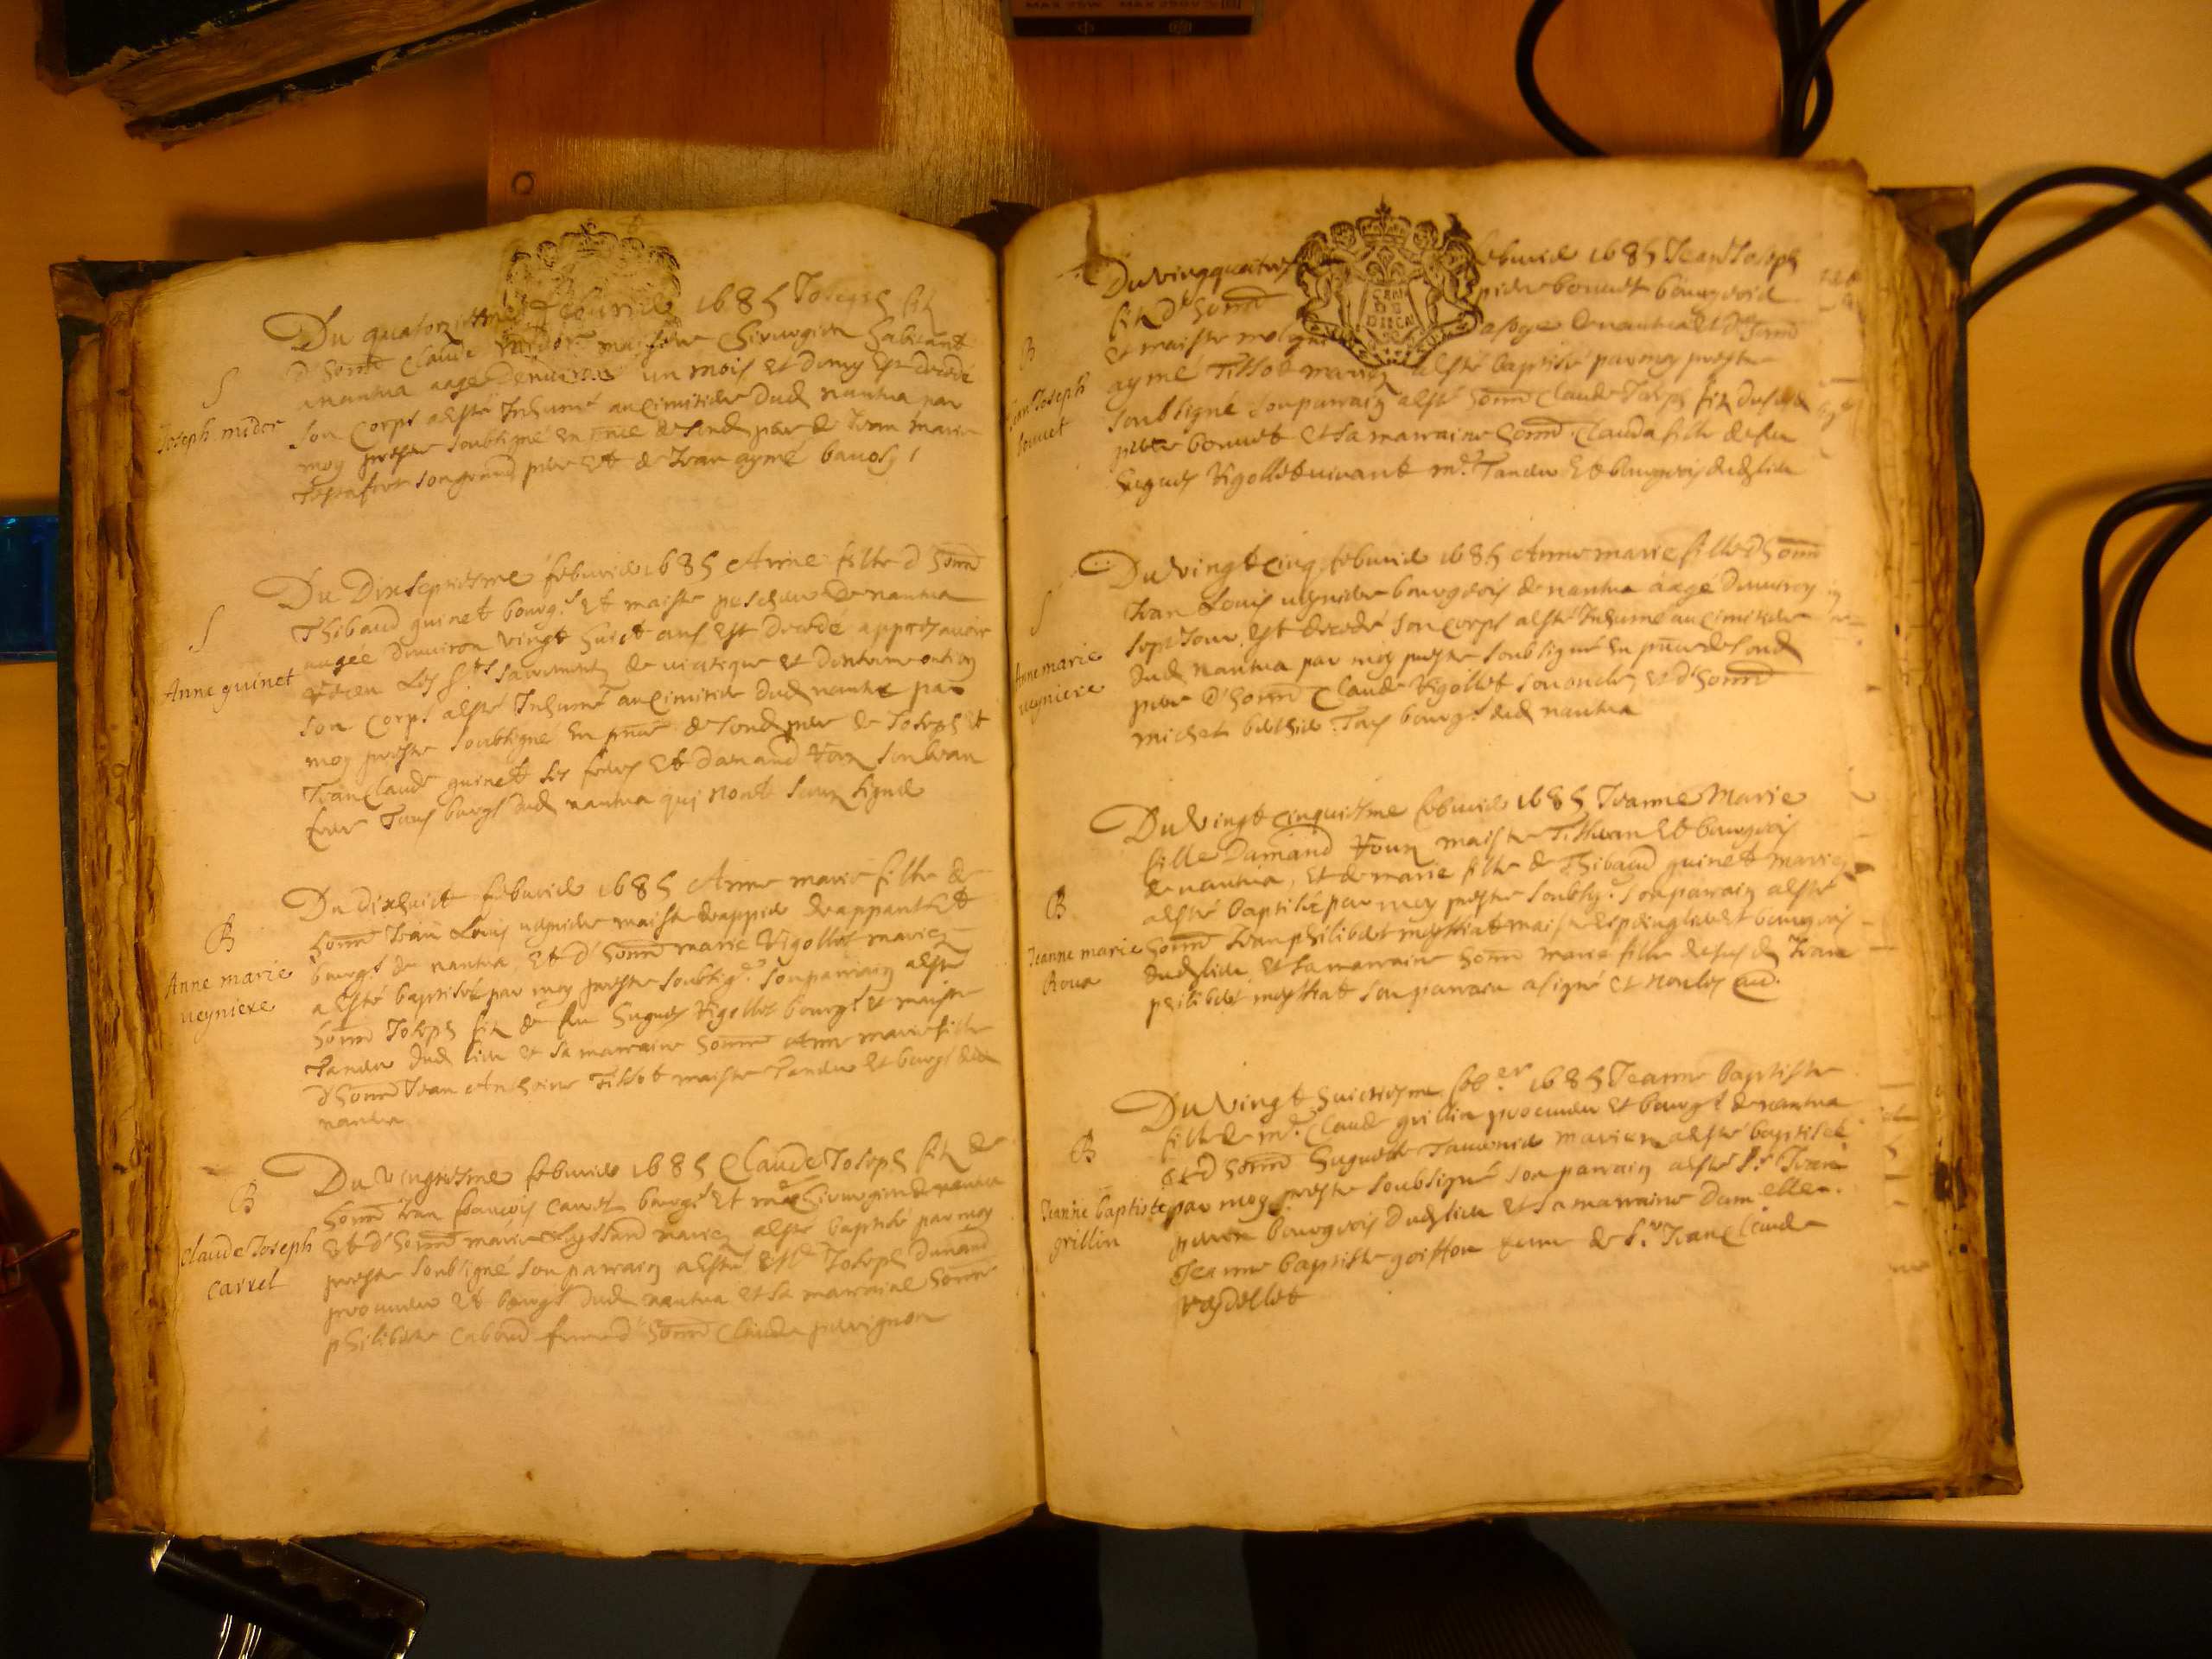 Du quatorziesme febvrier 1685 Joseph fils
d'honn. Claude midor maistre chirurgien habitant
a nantua aagé denviron un mois et demy est decedé
son corps a esté Inhumé au cimitiere dud nantua par
moy prestre soubsigné en pnce de sond. pere de Jean marie
son grand pere et de Jean aymé
S
Joseph midor
Du Dixseptiesme febvrier 1685 Anne fille d'honn.
Thibaud guinet bourg.s et maistre pescheur de nantua
aagée denviron vingt huict ans est decedé appres avoir
receu les S.ts sacrements de viatique et dextreme onction
son corps a esté Inhumé au cimitiere dud nantua par
moy prestre soubsigné en pnce de sond pere de Joseph et
Jean Claude guinet ses freres et damand roux son beau
frere Tous bourgs dud nantua qui nont sceu signer
S
Anne guinet
Du dixhuict febvrier 1685 Anne marie fille de
honn. Jean Louis veyniere maistre drappier drappant et
bourgs de nantua, et d'honn. marie Vigollet mariez
a esté baptisée par moy prestre soubsig.é son parrain a esté
honn. Joseph fils de feu hugues Vigollet bourgs et maistre
Tanneur dud lieu et sa marraine honn. Anne marie fille
d'honn. Jean Anthoine Tissot maistre Tanneur et bourgs dud
nantua
B
Anne marie
veyniere
Du vingtiesme febvrier 1685 Claude Joseph fils de
honn. Jean francois Carrel bourgs et me chirurgien de nantua
et d'honn. marie mariez a esté baptisé par moy
prestre soubsigné son parrain a esté Joseph Dunand
procureur et bourgs dud nantua et sa marraine honn.
philiberte Caboud femme d'honn. Claude
B
Claude Joseph
Carrel
Du vingquatres febvrier 1685 Jean Joseph
fils d'honn. pierre bouuet bourgeois
et maistre de nantua et d'honn.
aymé Tissot mariez a esté baptisé par moy prestre
soubsigné son parrain a esté honn. Claude fils dud
pierre bouuet et sa marraine honn. Clauda fille de feu
hugues Vigollet vivant m.e Tanneur et bourgeois dud lieu
B
Jean Joseph
bouuet
Du Vingt cinq febvrier 1685 Anne marie fille d'honn.
Jean Louis veyniere bourgeois de nantua aagé denviron
sept Jours est decedé son corps a esté Inhumé au cimitiere
dud nantua par moy prestre soubsigné en pnce de sond
pere d'honn. Claude Vigollet son oncle, et d'honn.
michel Tous bourgs dud nantua
S
Anne marie
veyniere
Du Vingt cinquiesme febvrier 1685 Jeanne Marie
fille Damand roux maistre et bourgeois
de nantua, et de marie fille de Thibaud guinet mariez
a esté baptisée par moy prestre soubsig.é son parrain a esté
honn. Jean philibert maistre espinglier et bourgeois
dud lieu et sa marraine honn. marie fille dud Jean
philibert son parrain a signé et non les aud.
B
Jeanne marie
Roux
Du Vingt huictiesme feb.er 1685 Jeanne baptiste
fille de m.e Claude grillin procureur et bourgs de nantua
et d'honn. huguette mariez a esté baptisée
par moy prestre soubsigné son parrain a esté s.r Jean
bourgeois dud lieu et sa marraine damelle
Jeanne baptiste goisson femme de s.r Jean Claude
B
Jeanne baptiste
grillin